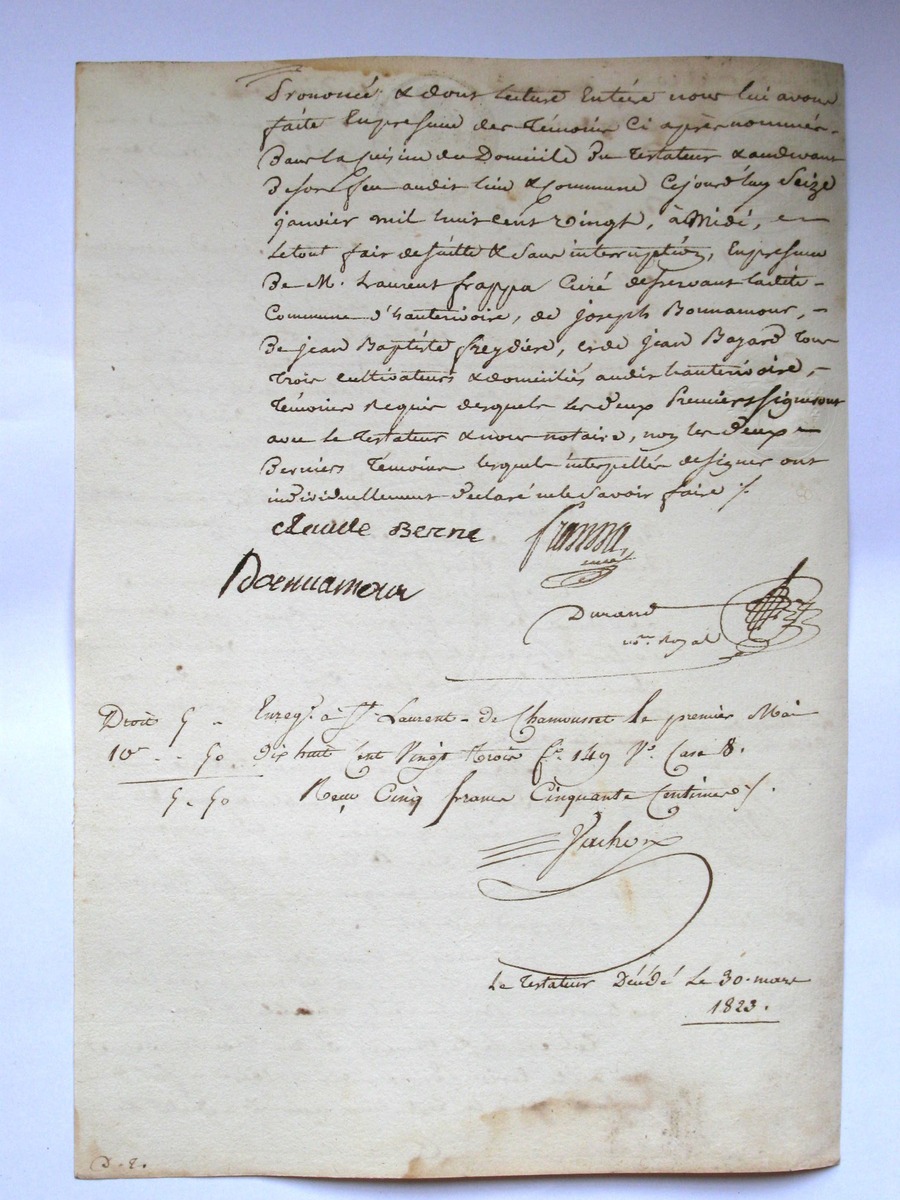 Prononcé & dont lecture Entère nous lui avons
faite En presence des Témoins Ci après nommés -
Dans la cuisine du Domicile Du Testateur & au devant
De son feu audit lieu & commune Cejourd'huy Seize
janvier mil huit cent vingt, à Midi,
le tout fait de suitte & sans interruption, En presence
De M. Laurent frappa Curé desservant ladite -
Commune d'hauterivoire, de joseph Bonnamour, -
De jean Baptiste freydière, et de jean Bazard Tous
Trois cultivateurs & domiciliés audit hauterivoire, -
Témoins Requis desquels les deux Premiers signeront
avec le Testateur & nous notaire, non les deux -
Derniers Témoins lesquels interpellés de signer ont
individuellement déclaré ne le savoir faire /.
claude Berne frappa
curé
Bonnamour
Durand
nre Royal
Droit 5 - Enregt. à St Laurent - de Chamousset le premier Mai
10e - - 50 dix huit Cent Vingt trois fo 149 Vo Case 8.
5 - 50 Reçu Cinq francs Cinquante Centimes /.
Vachon
Le Testateur Décédé Le 30 mars
1823.
D. E.